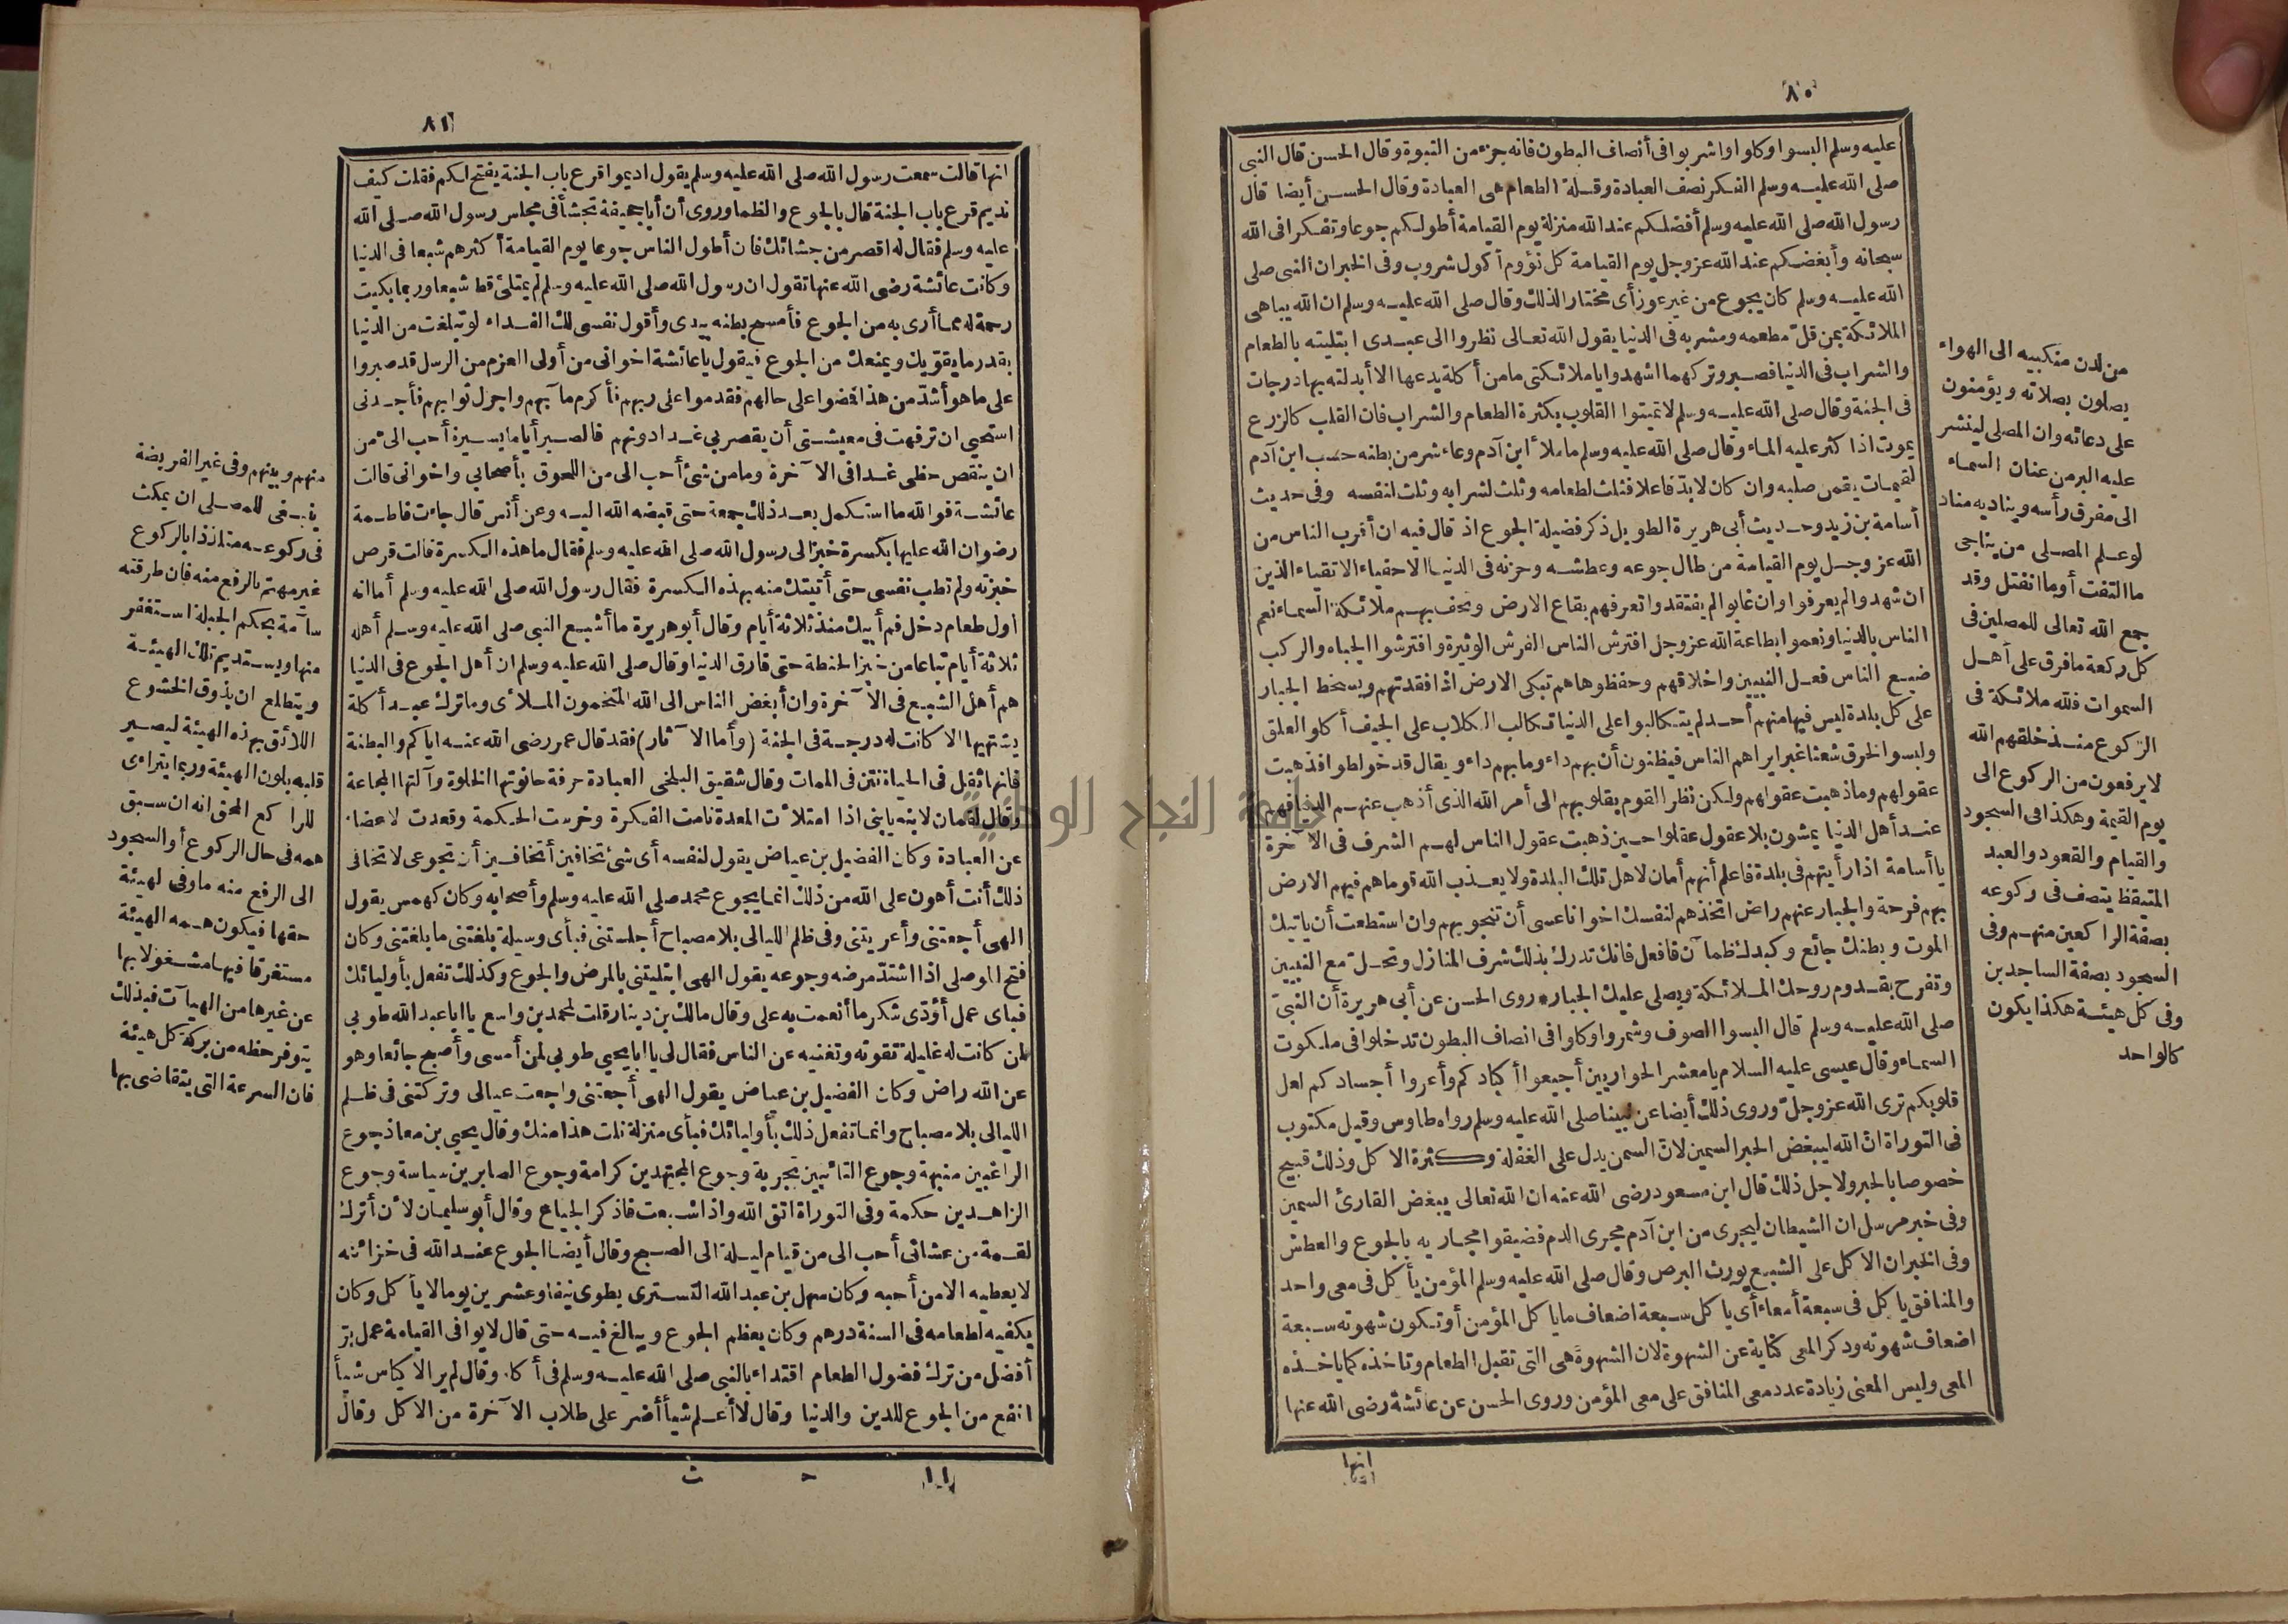 ٨٠
عليه وسلم البسوا وكلوا واشربوا فى أنصاف البطون فانه جزء من النبوة وقال الحسن قال النبى
صلى الله عليه وسلم الفكر نصف العبادة وقلة الطعام هى العبادة وقال الحسن أيضا قال
رسول الله صلى الله عليه وسلم أفضلكم عند الله منزلة يوم القيامة أطولكم جوعا وتفكرا فى الله
سبحانه وأبغضكم عند الله عز وجل يوم القيامة كل نؤوم أكول شروب وفى الخبر ان النبى صلى
الله عليه وسلم كان يجوع من غير عوز أى مختار الذلك وقال صلى الله عليه وسلم ان الله يباهى
الملائكة بمن قل مطعمه ومشربه فى الدنيا يقول الله تعالى نظروا الى عبدى ابتليته بالطعام
والشراب فى الدنيا فصبر وتركهما اشهدوا يا ملائكتى ما من أكلة يدعها الا أبدلته بها درجات
فى الجنة وقال صلى الله عليه وسلم لا تميتوا القلوب بكثرة الطعام والشراب فان القلب كالزرع
يموت اذا كثر عليه الماء وقال صلى الله عليه وسلم ما ملأ ابن آدم وعاء شر من بطنه حسب ابن آدم
لقيمات يقمن صلبه وان كان لابد فاعلا فثلث لطعامه وثلث لشرابه وثلث لنفسه وفى حديث
أسامة بن زيد وحديث أبى هريرة الطويل ذكر فضيلة الجوع اذ قال فيه ان أقرب الناس من
الله عز وجل يوم القيامة من طال جوعه وعطشه وحزنه فى الدنيا الاحفياء الاتقياء الذين
ان شهدوا لم يعرفوا وان غابوا لم يفتقدوا تعرفهم بقاع الارض وتحف بهم ملائكة السماء نعم
الناس بالدنيا ونعموا بطاعة الله عز وجل افترش الناس الفرش الوثيرة وافترشوا الجباه والركب
ضيع الناس فعل النبيين واخلاقهم وحفظوها هم تبكى الارض اذا فقدتهم ويسخط الجبار
على كل بلدة ليس فيها منهم أحد لم يتكالبوا على الدنيا تكالب الكلاب على الجيف أكلوا العلق
ولبسوا الخرق شعثا غبرا يراهم الناس فيظنون أن بهم داء وما بهم داء ويقال قد خولطوا فذهبت
عقولهم وما ذهبت عقولهم ولكن نظر القوم بقلوبهم الى أمر الله الذى أذهب عنهم الدنيا فهم
عند أهل الدنيا يمشون بلا عقول عقلوا حين ذهبت عقول الناس لهم الشرف فى الآخرة
يا أسامة اذا رأيتهم فى بلدة فاعلم أنهم أمان لاهل تلك البلدة ولا يعذب الله قوما هم فيهم الارض
بهم فرحة والجبار عنهم راض اتخذهم لنفسك اخوانا عسى أن تنجو بهم وان استطعت أن يأتيك
الموت وبطنك جائع وكبدك ظمآن فافعل فانك تدرك بذلك شرف المنازل وتحل مع النبيين
وتفرح بقدوم روحك الملائكة ويصلى عليك الجبار * روى الحسن عن أبى هريرة أن النبى
صلى الله عليه وسلم قال البسوا الصوف وشمروا وكلوا فى انصاف البطون تدخلوا فى ملكوت
السماء وقال عيسى عليه السلام يا معشر الحواريين أجيعوا أكبادكم وأعروا أجسادكم لعل
قلوبكم ترى الله عز وجل وروى ذلك أيضا عن نبينا صلى الله عليه وسلم رواه طاوس وقيل مكتوب
فى التوراة ان الله ليبغض الحبر السمين لان السمن يدل على الغفلة وكثرة الاكل وذلك قبيح
خصوصا بالحبر ولاجل ذلك قال ابن مسعود رضى الله عنه ان الله تعالى يبغض القارئ السمين
وفى خبر مرسل ان الشيطان ليجرى من ابن آدم مجرى الدم فضيقوا مجاريه بالجوع والعطش
وفى الخبر ان الاكل على الشبع يورث البرص وقال صلى الله عليه وسلم المؤمن يأكل فى معى واحد
والمنافق ياكل فى سبعة أمعاء أى ياكل سبعة اضعاف ما ياكل المؤمن أو تكون شهوته سبعة
اضعاف شهوته وذكر المعى كناية عن الشهوة لان الشهوة هى التى تقبل الطعام وتأخذه كما ياخذه
المعى وليس المعنى زيادة عدد معى المنافق على معى المؤمن وروى الحسن عن عائشة رضى الله عنها
انها
من لدن منكبيه الى الهواء
يصلون بصلاته ويؤمنون
على دعائه وان المصلى لينثر
عليه البر من عنان السماء
الى مفرق رأسه ويناديه مناد
لو علم المصلى من يناجى
ما التفت أو ما انفتل وقد
جمع الله تعالى للمصلين فى
كل ركعة ما فرق على أهل
السموات فلله ملائكة فى
الركوع منذ خلقهم الله
لا يرفعون من الركوع الى
يوم القيمة وهكذا فى السجود
والقيام والقعود والعبد
المتيقظ يتصف فى ركوعه
بصفة الراكعين منهم وفى
السجود بصفة الساجدين
وفى كل هيئة هكذا يكون
كالواحد
٨١
انها قالت سمعت رسول الله صلى الله عليه وسلم يقول اديموا قرع باب الجنة يفتح لكم فقلت كيف
نديم قرع باب الجنة قال بالجوع والظما وروى أن أبا جحيفة تجشأ فى مجلس رسول الله صلى الله
عليه وسلم فقال له اقصر من جشائك فان أطول الناس جوعا يوم القيامة أكثرهم شبعا فى الدنيا
وكانت عائشة رضى الله عنها تقول ان رسول الله صلى الله عليه وسلم لم يمتلئ قط شبعا وربما بكيت
رحمة له مما أرى به من الجوع فأمسح بطنه بيدى وأقول نفسى لك الفداء لو تبلغت من الدنيا
بقدر ما يقويك ويمنعك من الجوع فيقول يا عائشة اخوانى من أولى العزم من الرسل قد صبروا
على ما هو أشد من هذا فضوا على حالهم فقدموا على ربهم فأكرم مآبهم واجزل ثوابهم فأجدنى
استحيى ان ترفهت فى معيشتى أن يقصر بى غدا دونهم فالصبر أياما يسيرة أحب الى من
ان ينقص حظى غدا فى الآخرة وما من شئ أحب الى من اللحوق بأصحابى واخوانى قالت
عائشة فوالله ما استكمل بعد ذلك جمعة حتى قبضه الله اليه وعن أنس قال جاءت فاطمة
رضوان الله عليها بكسرة خبز الى رسول الله صلى الله عليه وسلم فقال ما هذه الكسرة قالت قرص
خبزته ولم تطب نفسى حتى أتيتك منه بهذه الكسرة فقال رسول الله صلى الله عليه وسلم أما انه
أول طعام دخل فم أبيك منذ ثلاثة أيام وقال أبو هريرة ما أشبع النبى صلى الله عليه وسلم أهله
ثلاثة أيام تباعا من خبز الحنطة حتى فارق الدنيا وقال صلى الله عليه وسلم ان أهل الجوع فى الدنيا
هم أهل الشبع فى الآخرة وان أبغض الناس الى الله المتخمون الملأى وما ترك عبد أكلة
يشتهيها الا كانت له درجة فى الجنة (وأما الآثار) فقد قال عمر رضى الله عنه اياكم والبطنة
فانها ثقل فى الحياة نتن فى الممات وقال شقيق البلخى العبادة حرفة حانوتها الخلوة وآلتها المجاعة
وقال لقمان لابنه يا بنى اذا امتلأت المعدة نامت الفكرة وخرست الحكمة وقعدت الاعضاء
عن العبادة وكان الفضيل بن عياض يقول لنفسه أى شئ تخافين أتخافين أن تجوعى لا تخافى
ذلك أنت أهون على الله من ذلك انما يجوع محمد صلى الله عليه وسلم وأصحابه وكان كهمس يقول
الهى أجعتنى وأعريتنى وفى ظلم الليالى بلا مصباح أجلستنى فبأى وسيلة بلغتنى ما بلغتنى وكان
فتح الموصلى اذا اشتد مرضه وجوعه يقول الهى ابتليتنى بالمرض والجوع وكذلك تفعل بأوليائك
فباى عمل أؤدى شكر ما أنعمت به على وقال مالك بن دينار قلت لمحمد بن واسع يا ابا عبد الله طوبى
لمن كانت له غليلة تقوته وتغنيه عن الناس فقال لى يا ابا يحيى طوبى لمن أمسى وأصبح جائعا وهو
عن الله راض وكان الفضيل بن عياض يقول الهى أجعتنى واجعت عيالى وتركتنى فى ظلم
الليالى بلا مصباح وانما تفعل ذلك بأوليائك فبأى منزلة نلت هذا منك وقال يحيى بن معاذ جوع
الراغبين منبهة وجوع التائبين تجربة وجوع المجتهدين كرامة وجوع الصابرين سياسة وجوع
الزاهدين حكمة وفى التوراة اتق الله واذا شبعت فاذكر الجياع وقال أبو سليمان لأن أترك
لقمة من عشائى أحب الى من قيام ليلة الى الصبح وقال أيضا الجوع عند الله فى خزائنه
لا يعطيه الا من أحبه وكان سهل بن عبد الله التسترى يطوى نيفا وعشرين يوما لا يأكل وكان
يكفيه لطعامه فى السنة درهم وكان يعظم الجوع ويبالغ فيه حتى قال لا يوافى القيامة عمل بر
أفضل من ترك فضول الطعام اقتداء بالنبى صلى الله عليه وسلم فى أكله وقال لم ير الاكياس شيأ
انفع من الجوع للدين والدنيا وقال لا أعلم شيأ أضر على طلاب الآخرة من الاكل وقال
١١ ح ث
منهم وبينهم وفى غير الفريضة
ينبغى للمصلى ان يمكث
فى ركوعه متلذذا بالركوع
غير مهتم بالرفع منه فان طرقته
سآمة بحكم الجبلة استغفر
منها ويستديم تلك الهيئة
ويتطلع ان يذوق الخشوع
اللائق بهذه الهيئة ليصير
قلبه بلون الهيئة وربما يتراءى
للراكع المحق انه ان سبق
همه فى حال الركوع أو السجود
الى الرفع منه ما وفى لهيئة
حقها فيكون همه الهيئة
مستغرقا فيها مشغولا بها
عن غيرها من الهيآت فبذلك
يتوفر حظه من بركة كل هيئة
فان السرعة التى يتقاضى بها
جامعة النجاح الوطنية